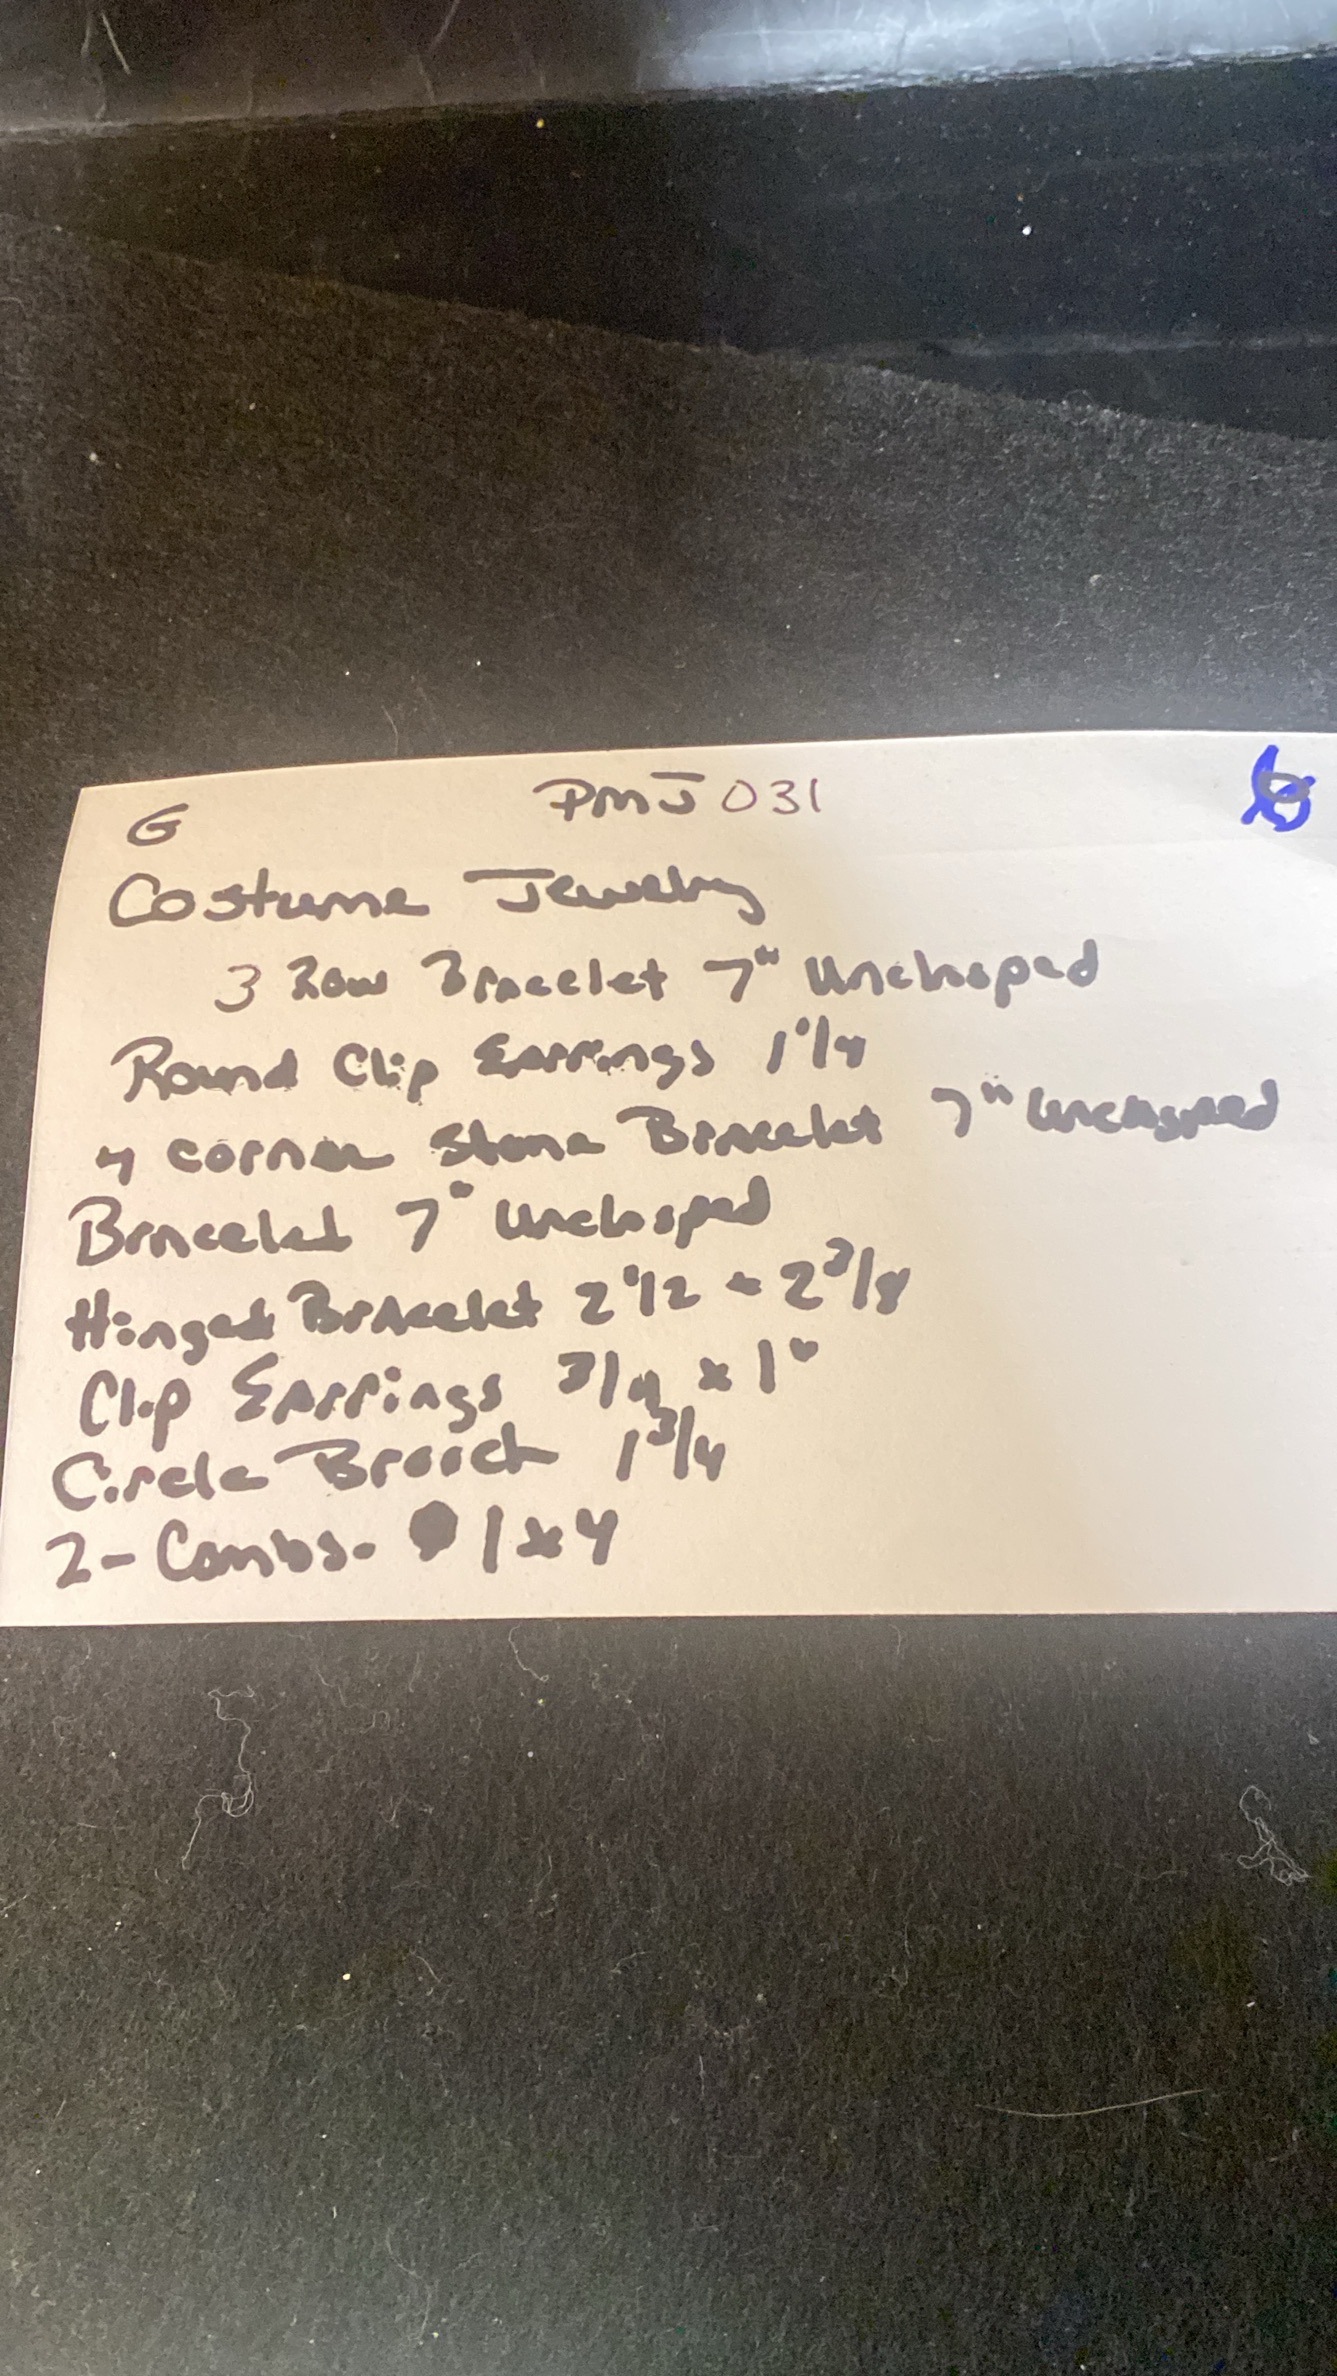 G PMJ 031 6
Costume Jewelry
3 Row Bracelet 7" Unclasped
Round Clip Earrings 1 1/4
4 corner Stone Bracelet 7" Unclasped
Bracelet 7" Unclasped
Hinged Bracelet 2 1/2 x 2 3/8
Clip Earrings 3/4 x 1"
Circle Brooch 1 3/4
2- Combs- 1x4